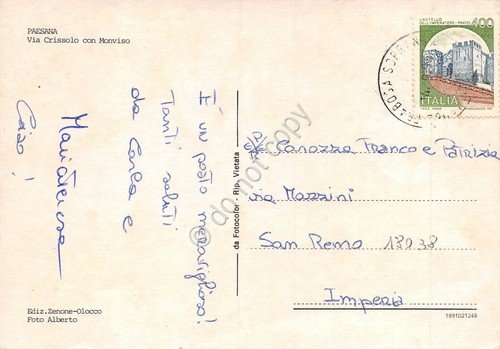 PAESANA
Via Crissolo con Monviso
È un posto meraviglioso!
Tanti saluti
da Carla e
Mariateresa
Ciao!
Ediz.Zenone-Olocco
Foto Alberto
da Fotocolor - Rip. Vietata
do not copy
CASTELLO
DELL'IMPERATORE-PRATO
400
ITALIA
Canozza Franco e Patrizia
via Mazzini
San Remo 18038
Imperia
1891021248